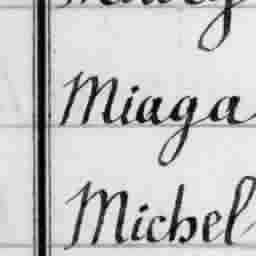 Miaga
Michel